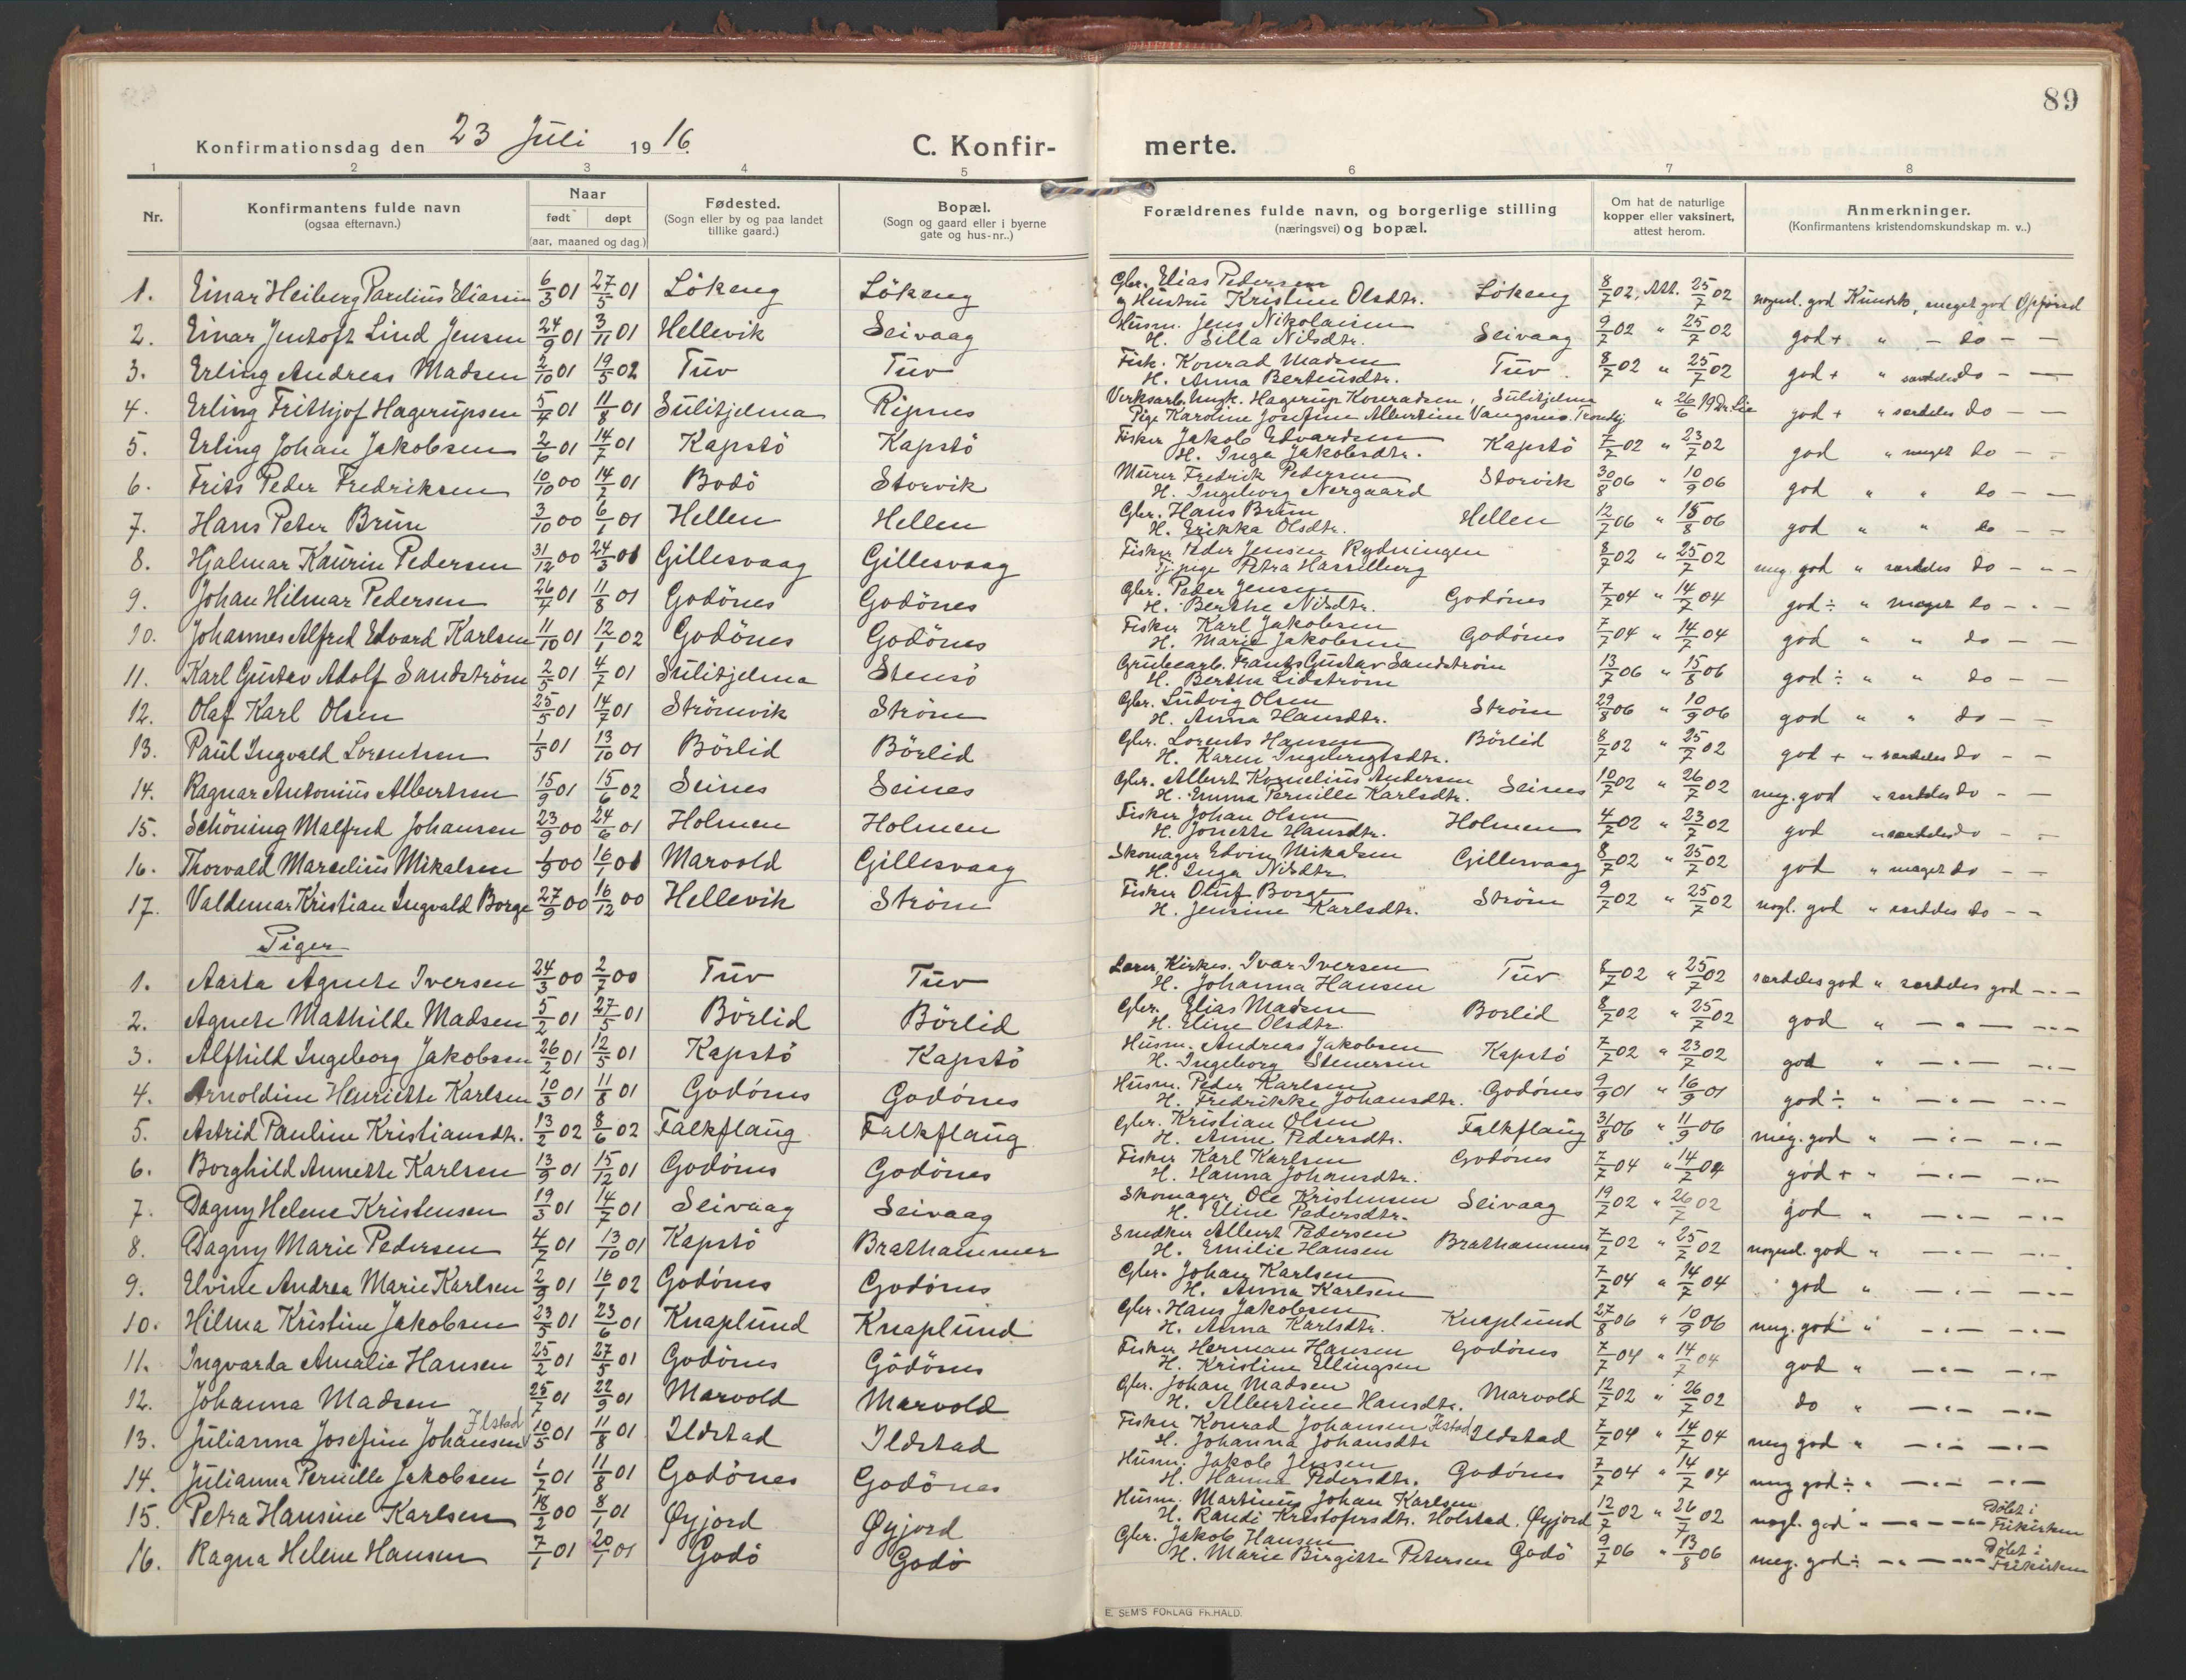 89
Konfirmationsdag den 23 Juli 1916.
C. Konfirmerte.
1 2 3 4 5 6 7 8
Nr.
Konfirmantens fulde navn
(ogsaa efternavn.)
Naar
født døpt
(aar, maaned og dag.)
Fødested.
(Sogn eller by og paa landet
tillike gaard.)
Bopæl.
(Sogn og gaard eller i byerne
gate og hus-nr..)
Forældrenes fulde navn, og borgerlige stilling
(næringsvei) og bopæl.
Om hat de naturlige
kopper eller vaksinert,
attest herom.
Anmerkninger.
(Konfirmantens kristendomskundskap m. v..)
1. Einar Heiberg Parelius Eliassen 6/3 01 27/5 01 Lökeng Lökeng Gbr. Elias Pedersen Lökeng 8/7 02, Att. 25/7 02 nogenl. god Kundsk., meget god Opførsel
og Hustru Kristine Olsdtr.
2. Einar Jentoft Lind Jensen 24/9 01 3/11 01 Hellevik Seivaag Husm. Jens Nikolaisen Seivaag 9/7 02 " 25/7 02 god + " - do - -
H. Silla Nilsdtr.
3. Erling Andreas Madsen 2/10 01 19/5 02 Tuv Tuv Fisk. Konrad Madsen Tuv 8/7 02 " 25/7 02 god + " særdeles do - -
H. Anna Berteusdtr.
4. Erling Frithjof Hagerupsen 5/7 01 11/8 01 Sulitjelma Ripnes Verksarb. Ungk. Hagerup Konradsen, Sulitjelma " 26/6 19 Dr. Lie god + " særdeles do - -
Pige Karoline Josefine Albertine Vangsnes. Trondhj
5. Erling Johan Jakobsen 2/6 01 14/7 01 Kapstö Kapstö Fisker Jakob Edvardsen Kapstö 7/7 02 " 23/7 02 god " meget do - -
H. Inga Jakobsdtr.
6. Frits Peder Fredriksen 10/10 00 14/2 01 Bodö Storvik Murer Fredrik Pedersen Storvik 30/8 06 " 10/9 06 god " " do - -
H. Ingeborg Nergaard
7. Hans Peter Brun 3/10 00 6/1 01 Hellen Hellen Gbr. Hans Brun Hellen 12/7 06 " 15/8 06 god " " do - -
H. Erikka Olsdtr.
8. Hjalmar Kaurin Pedersen 31/12 00 24/3 01 Gillesvaag Gillesvaag Fisker Peder Jensen Rydningen 8/7 02 " 25/7 02 meg. god " særdeles do - " -
Tj.pige Petra Hasselberg
9. Johan Hilmar Pedersen 26/7 01 11/8 01 Godönes Godönes Gbr. Peder Jensen Godönes 7/7 04 " 14/7 04 god ÷ " meget do - " -
H. Berthe Nilsdtr.
10. Johannes Alfred Edvard Karlsen 11/10 01 12/1 02 Godönes Godönes Fisker Karl Jakobsen Godönes 7/7 04 " 14/7 04 god " " do - -
H. Marie Jakobsen
11. Karl Gustav Adolf Sandström 2/5 01 4/7 01 Sulitjelma Stensö Grubearb. Frants Gustav Sandström 13/7 06 " 15/8 06 god ÷ " " do - -
H. Bertha Lidström
12. Olaf Karl Olsen 25/5 01 14/7 01 Strömvik Ström Gbr. Ludvig Olsen Ström 29/8 06 " 10/9 06 god " " do - -
H. Anna Hansdtr.
13. Paul Ingvald Lorentsen 1/5 01 13/10 01 Börlid Börlid Gbr. Lorents Hansen Börlid 8/7 02 " 25/7 02 god + " særdeles do - -
H. Karen Ingebrigtsdtr.
14. Ragnar Antonius Albertsen 15/9 01 15/6 02 Seines Seines Gbr. Albert Kornelius Andersen Seines 10/7 02 " 26/7 02 meg. god " særdeles do - -
H. Emma Pernille Karlsdtr.
15. Schöning Malfred Johansen 23/9 00 24/6 01 Holmen Holmen Fisker Johan Olsen Holmen 4/7 02 " 23/7 02 god " særdeles do - -
H. Jonette Hansdtr.
16. Thorvald Marselius Mikalsen 1/9 00 16/1 01 Marvold Gillesvaag Skomager Edvin Mikalsen Gillesvaag 8/7 02 " 25/7 02 god " meget do - -
H. Inga Nilsdtr.
17. Valdemar Kristian Ingvald Borge 27/9 00 16/12 00 Hellevik Ström Fisker Oluf Borge Ström 9/7 02 " 25/7 02 nogl. god " særdeles do - -
H. Jensine Karlsdtr.
Piger
1. Aasta Agnete Iversen 24/3 00 2/7 00 Tuv Tuv Lærer, Kirkes. Ivar Iversen Tuv 8/7 02 " 25/7 02 særdeles god " særdeles god - " -
H. Johanna Hansen
2. Agnete Mathilde Madsen 5/2 01 27/5 01 Börlid Börlid Gbr. Elias Madsen Borlid 8/7 02 " 25/7 02 god " - " - - " -
H. Eline Olsdtr.
3. Alfhild Ingeborg Jakobsen 26/2 01 12/5 01 Kapstö Kapstö Husm. Andreas Jakobsen Kapstö 7/7 02 " 23/7 02 god " - " - - " -
H. Ingeborg Steuersen
4. Arnoldine Henriette Karlsen 10/3 01 11/8 01 Godönes Godönes Husm. Peder Karlsen Godönes 9/9 01 " 16/9 01 god ÷ " - " - - " -
H. Fredrikke Johansdtr.
5. Astrid Pauline Kristiansdtr. 13/2 02 8/6 02 Falkflaug Falkflaug Gbr. Kristian Olsen Falkflaug 31/8 06 " 11/9 06 meg. god " - " - - " -
H. Anne Pedersdtr.
6. Borghild Annette Karlsen 13/9 01 15/12 01 Godönes Godönes Fisker Karl Karlsen Godönes 7/7 04 " 14/7 04 god + " - " - - " -
H. Hanna Johansdtr.
7. Dagny Helene Kristensen 19/3 01 14/7 01 Seivaag Seivaag Skomager Ole Kristensen Seivaag 19/7 02 " 26/7 02 god " - " - - " -
H. Eline Pedersdtr.
8. Dagny Marie Pedersen 4/7 01 13/10 01 Kapstö Brathammer Snedker Albert Pedersen Brathammer 7/7 02 " 25/7 02 nogenl. god " - " - - " -
H. Emilie Hansen
9. Elvine Andrea Marie Karlsen 2/9 01 16/1 02 Godönes Godönes Gbr. Johan Karlsen 7/7 04 " 14/7 04 god " - " - - " -
H. Anna Karlsen
10. Hilma Kristine Jakobsen 23/5 01 23/6 01 Knaplund Knaplund Gbr. Hans Jakobsen Knaplund 27/8 06 " 10/9 06 meg. god " - " - - " -
H. Anna Karlsdtr.
11. Ingvarda Amalie Hansen 25/2 01 27/5 01 Godönes Godönes Fisker Herman Hansen Godönes 7/7 04 " 14/7 04 god " - " - - " -
H. Kristine Ellingsen
12. Johanna Madsen 25/7 01 22/9 01 Marvold Marvold Gbr. Johan Madsen Marvold 12/7 02 " 26/7 02 do " - " - - " -
H. Albertine Hansdtr.
13. Julianna Josefine Johansen Ilstad 10/5 01 11/8 01 Ildstad Ildstad Fisker Konrad Johansen Ilstad Ildstad 7/7 04 " 14/7 04 meg god " - " - - " -
H. Johanna Johansdtr
14. Julianna Pernille Jakobsen 1/7 01 11/8 01 Godönes Godönes Husm. Jakob Jensen Godönes 7/7 04 " 14/7 04 meg god ÷ " - " - - " -
H. Hanna Pedersdtr.
15. Petra Hansine Karlsen 18/2 00 8/1 01 Øyjord Øyjord Husm. Martinus Johan Karlsen 12/7 02 " 26/7 02 nogl. god " - " - - " - Döbt i Frikirken
H. Randi Kristofersdtr. Holstad, Øyjord
16. Ragna Helene Hansen 7/1 01 20/1 01 Godö Godö Gbr. Jakob Hansen Godö 9/7 06 " 13/8 06 meg. god ÷ - " - - " - Döbt i Frikirken
H. Marie Birgitte Petersen
E. SEM'S FORLAG FR.HALD.